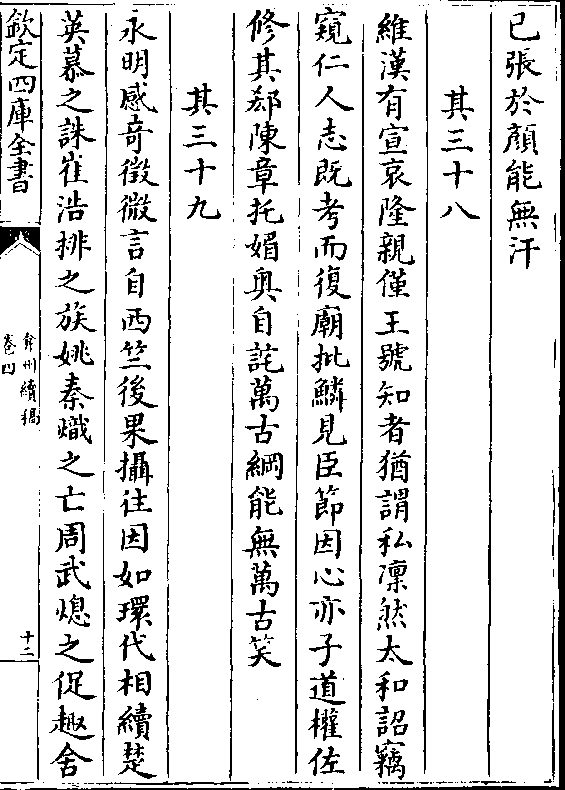 已張於顔能無汗
其三十八
維漢有宣哀隆親僅王號知者猶謂私凛然太和詔竊
窺仁人志既考而復廟批鱗見臣節因心亦子道權佐
修其郄陳章托媚奥自詫萬古綱能無萬古笑
其三十九
永明感竒徴微言自西竺後果攝往因如環代相續楚
英慕之誅崔浩排之族姚秦熾之亡周武熄之促趣舍
欽定四庫全書
弇州續稿
卷四
十二